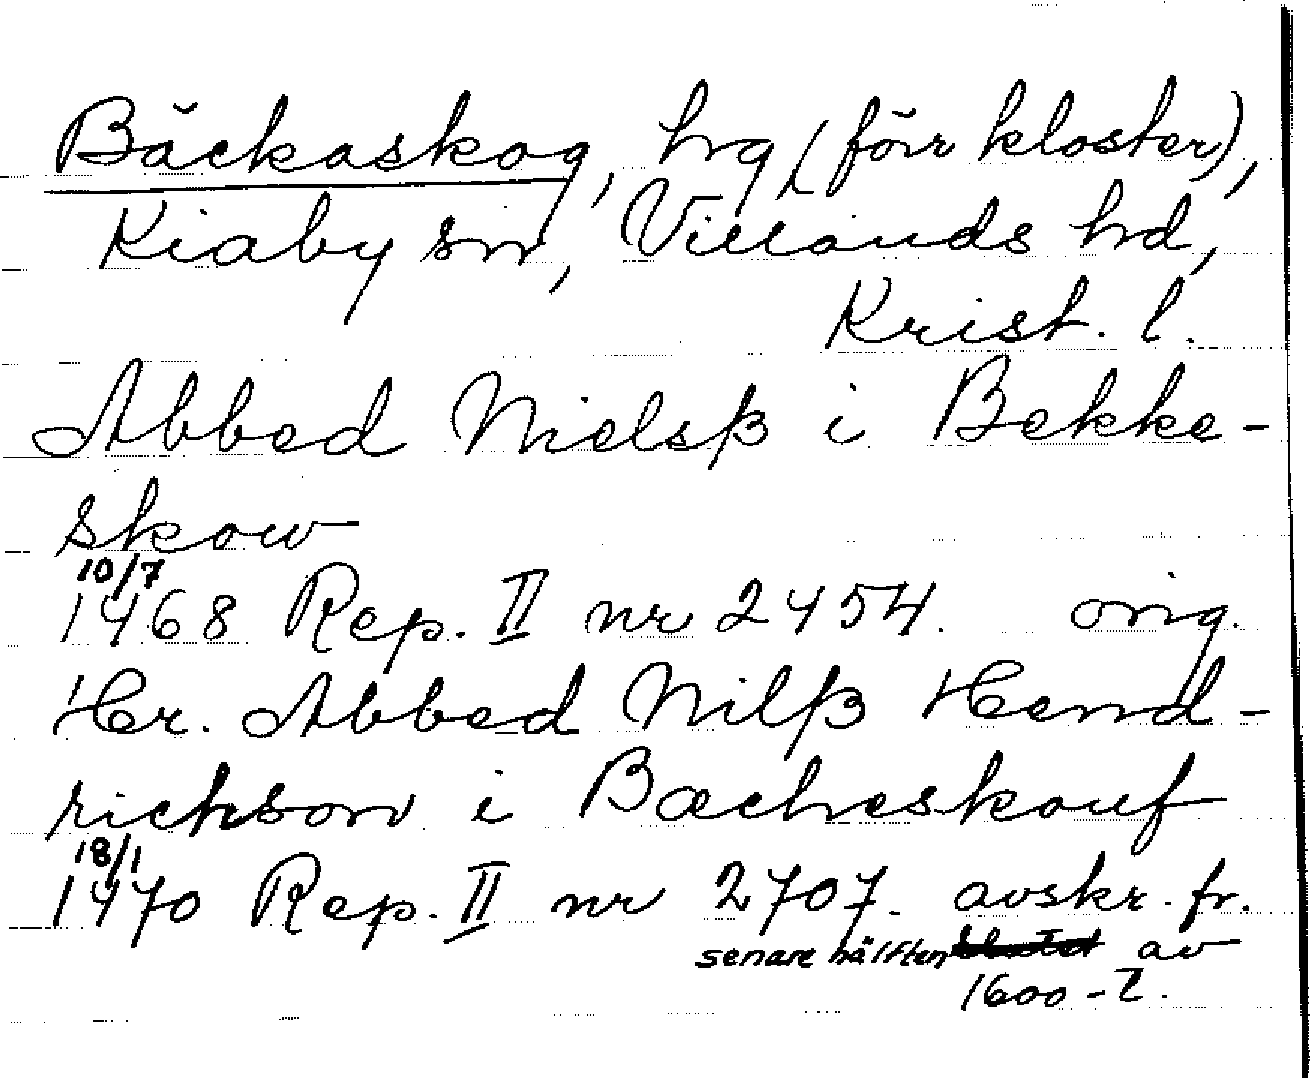 Bäckaskog, hg (förr kloster),
Kiaby sn, Villands hd,
Krist. l.
Abbed Nielsß i Bekke-
skow
10/7
1468 Rep. II nr 2454. orig.
Hr. Abbed Nilß Hend-
richson i Bæcheskouf
18/1
1470 Rep. II nr 2707. avskr. fr.
senare hälften av
1600-l.